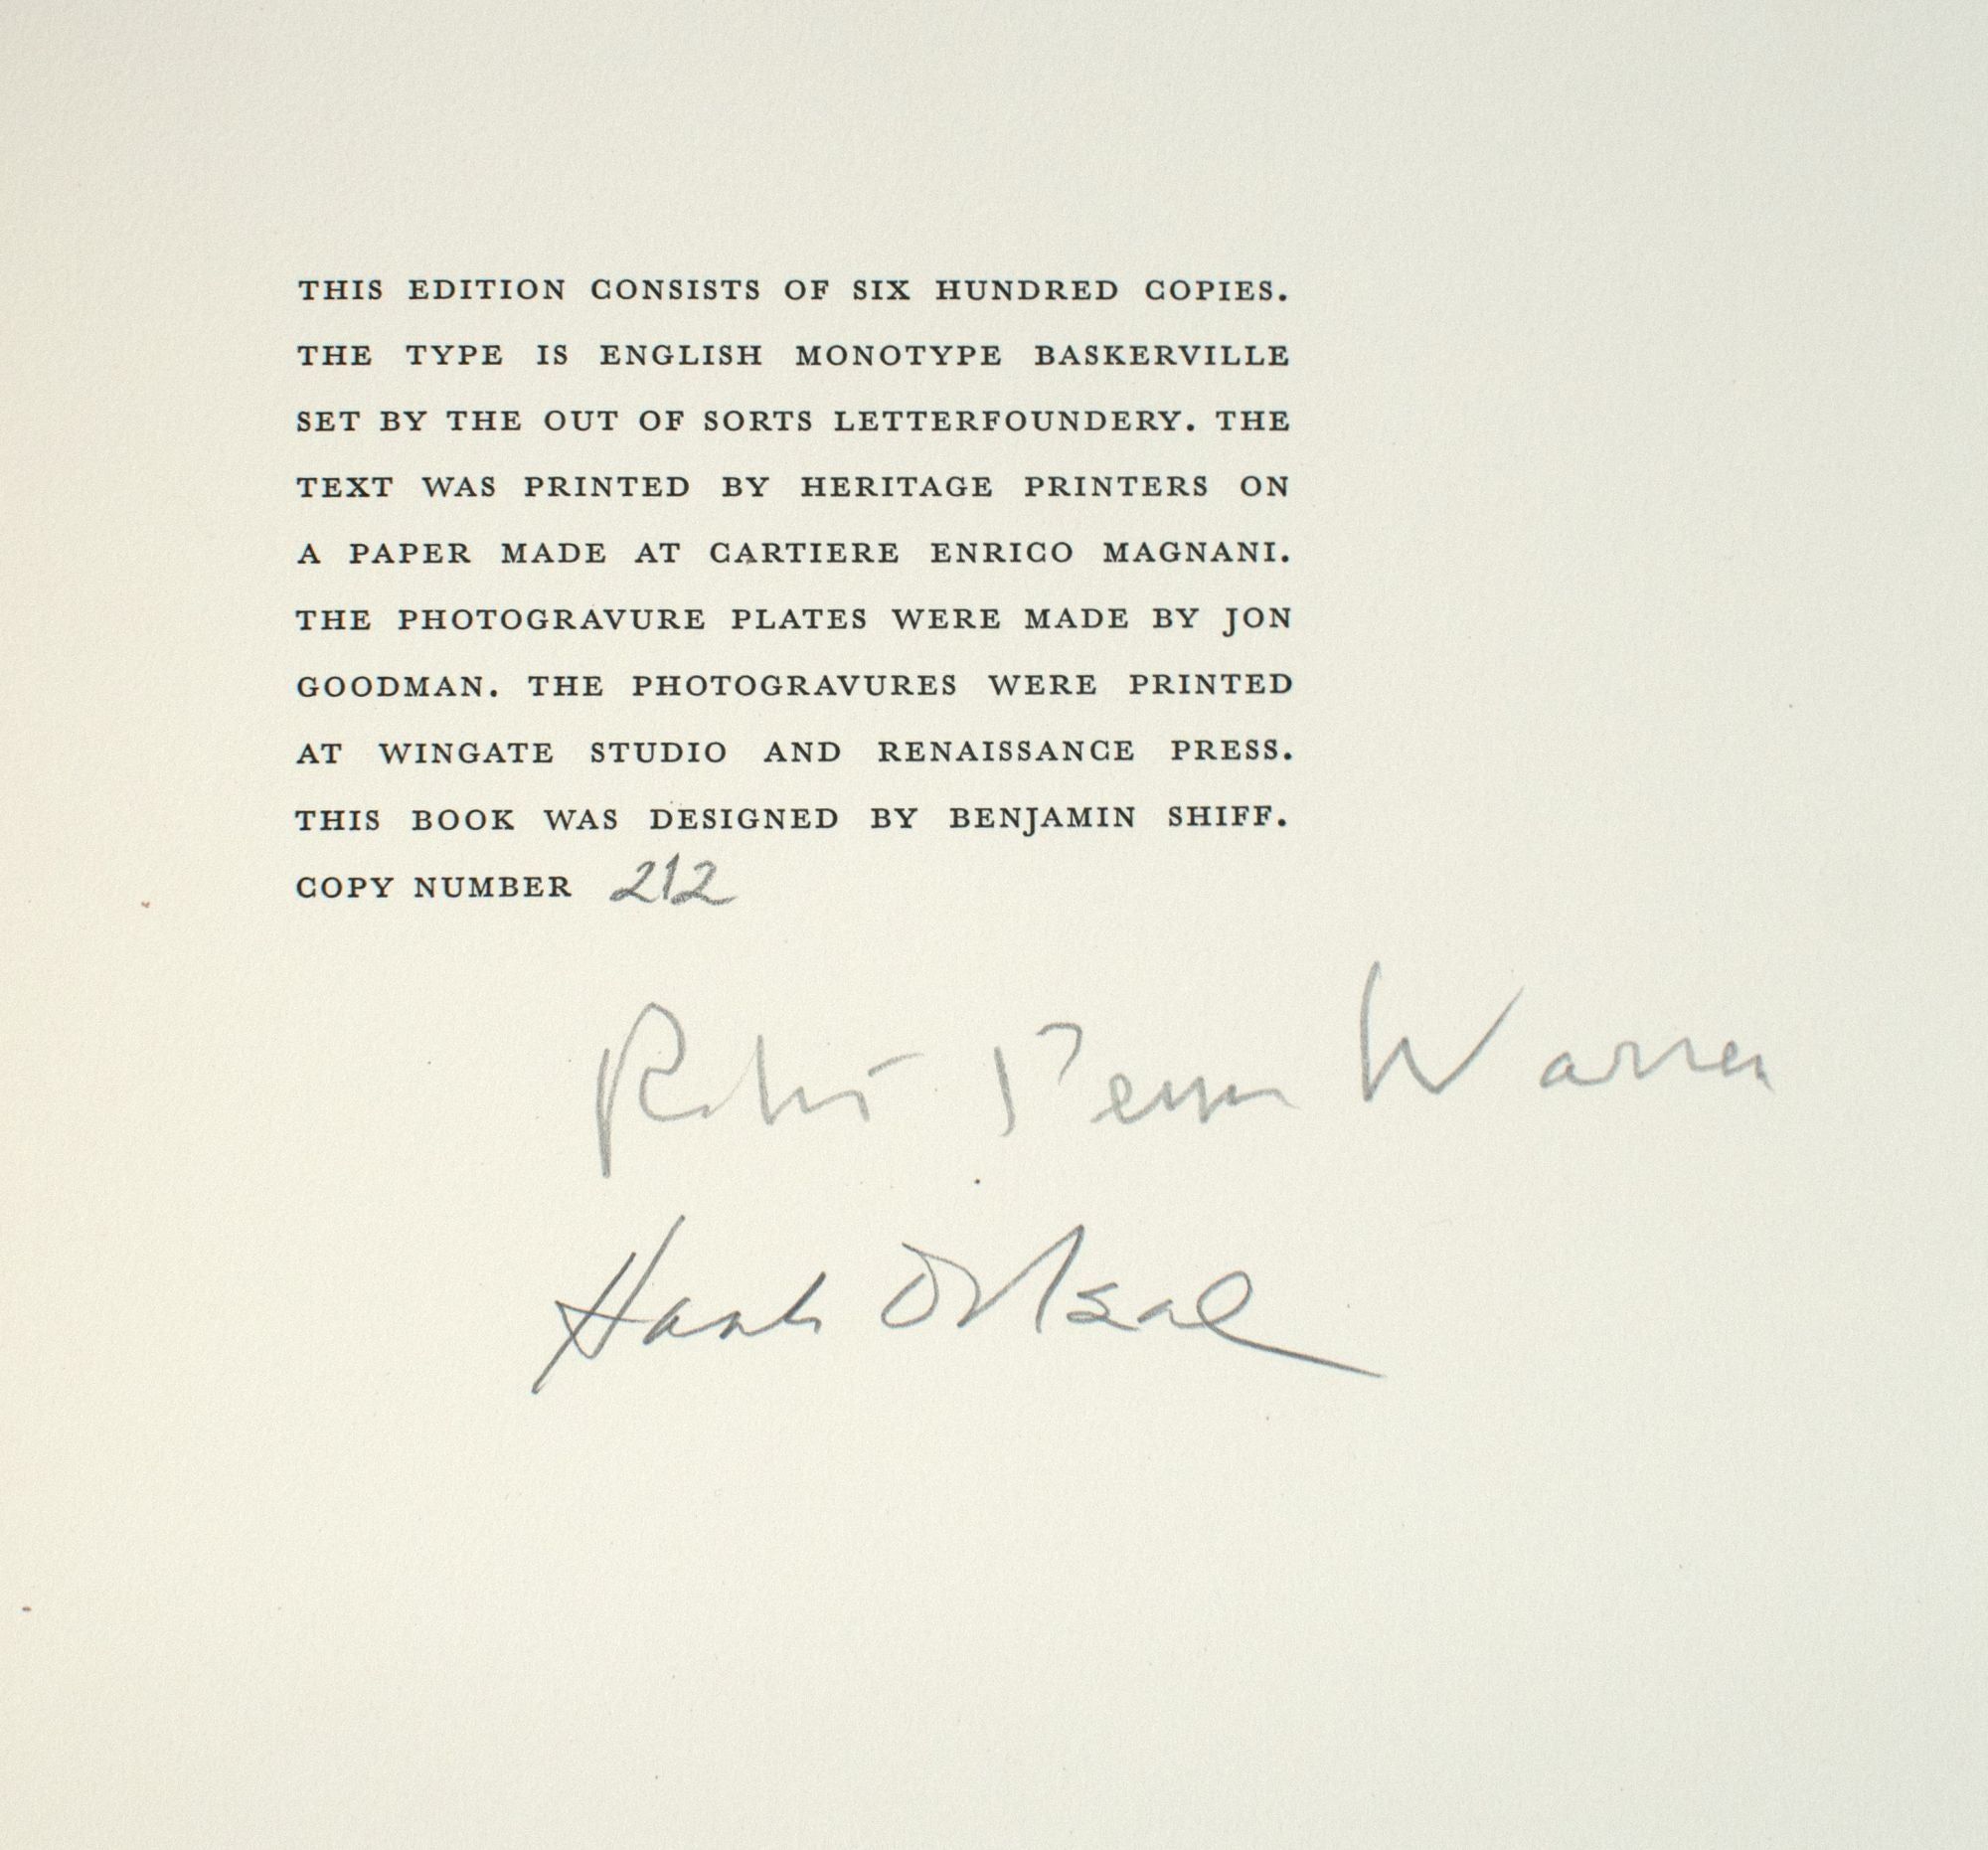 THIS EDITION CONSISTS OF SIX HUNDRED COPIES.
THE TYPE IS ENGLISH MONOTYPE BASKERVILLE
SET BY THE OUT OF SORTS LETTERFOUNDERY. THE
TEXT WAS PRINTED BY HERITAGE PRINTERS ON
A PAPER MADE AT CARTIERE ENRICO MAGNANI.
THE PHOTOGRAVURE PLATES WERE MADE BY JON
GOODMAN. THE PHOTOGRAVURES WERE PRINTED
AT WINGATE STUDIO AND RENAISSANCE PRESS.
THIS BOOK WAS DESIGNED BY BENJAMIN SHIFF.
COPY NUMBER 212
Robert Penn Warren
Hank O'Neal